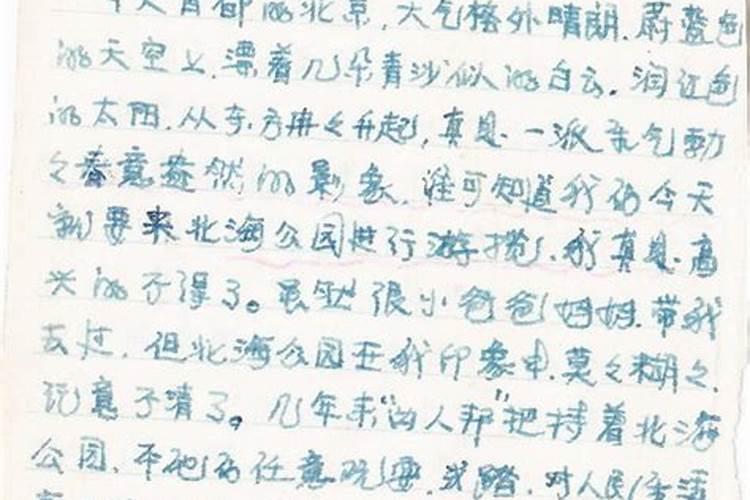 今天首都的北京,大气格外晴朗.蔚蓝色
的天空上.漂着几朵青沙似的白云.润江色
的太阳.从东方冉々升起,真是.一派朝气勃
々春意盎然的景象.谁可知道我们今天
就要来北海公园进行游揽.我真是.高
兴的不得了。虽然很小爸爸妈妈.带我
去过.但北海公园在我印象中.莫々糊々.
记意不清了。几年来“四人帮”把持着北海
公园.不